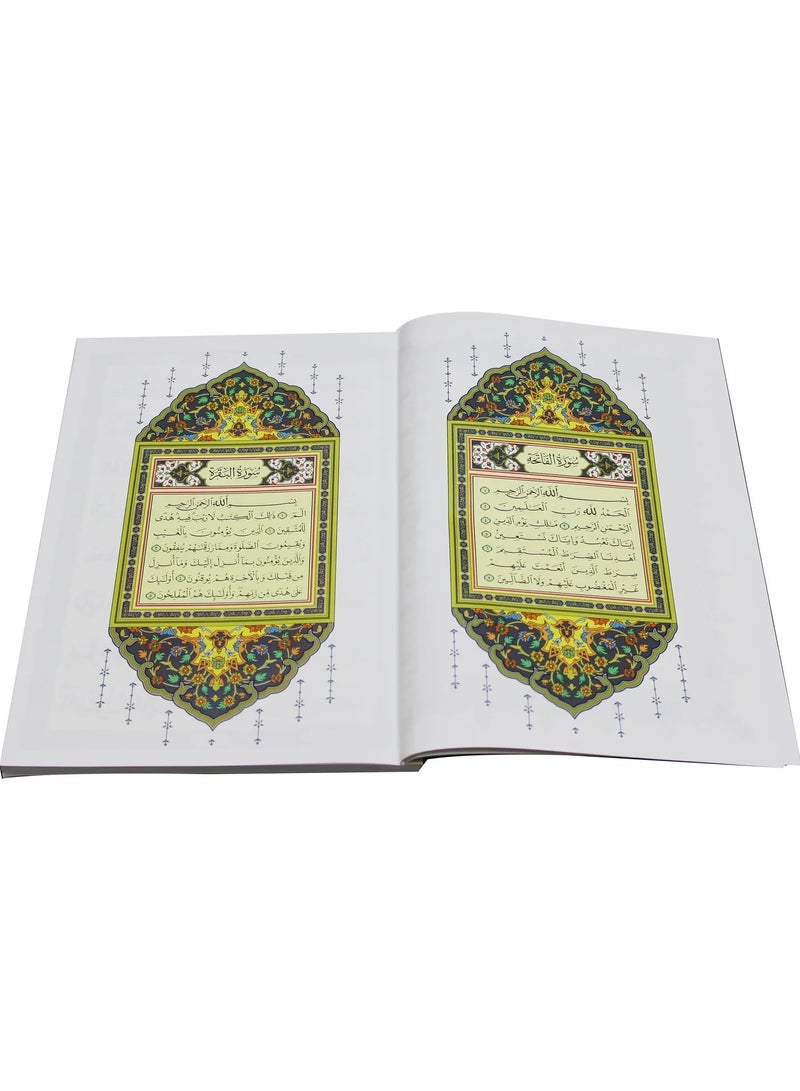 سورة الفاتحة
بسم الله الرحمن الرحيم ١
الحمد لله رب العلمين ٢
الرحمن الرحيم ٣ ملك يوم الدين ٤
إياك نعبد وإياك نستعين ٥
اهدنا الصرط المستقيم ٦
صرط الذين أنعمت عليهم
غير المغضوب عليهم ولا الضالين ٧
سورة البقرة
بسم الله الرحمن الرحيم
الم ١ ذلك الكتب لا ريب فيه هدى
للمتقين ٢ الذين يؤمنون بالغيب
ويقيمون الصلوة ومما رزقنهم ينفقون ٣
والذين يؤمنون بما أنزل إليك وما أنزل
من قبلك وبالآخرة هم يوقنون ٤ أولئك
على هدى من ربهم وأولئك هم المفلحون ٥